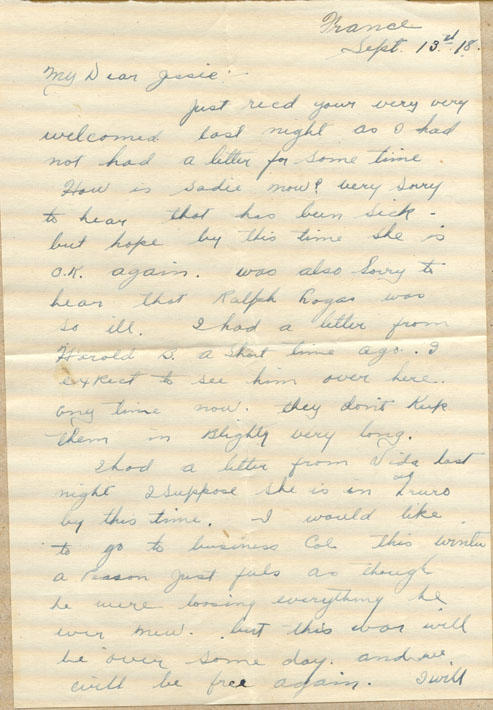 France
Sept. 13.rd 18.
My Dear Jessie:-
Just recd your very very
welcomed last night as I had
not had a letter for some time.
How is Sadie now? very sorry
to hear that has been sick -
but hope by this time she is
O.K. again. was also Sorry to
hear that Ralph Logas was
so ill. I had a letter from
Harold B. a short time ago. I
expect to see him over here.
any time now. they dont Keep
them in Blighty very long.
I had a letter from Vida last
night I suppose she is in Truro
by this time. I would like
to go to business Col this winter
a Person Just fels as though
he were loosing everything he
ever knew. but this war will
be over some day. and we
will be free again. I will